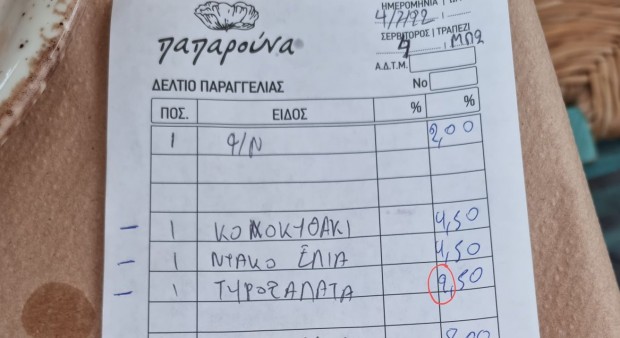 ΗΜΕΡΟΜΗΝΙΑ
4/7/22
παπαρούνα
ΣΕΡΒΙΤΟΡΟΣ | ΤΡΑΠΕΖΙ
ΜΠ2
Α.Δ.Τ.Μ.
ΔΕΛΤΙΟ ΠΑΡΑΓΓΕΛΙΑΣ
No
ΠΟΣ. ΕΙΔΟΣ % %
1 Φ/Ν 2,00
1 ΚΟΛΟΚΥΘΑΚΙ 4,50
1 ΝΤΑΚΟ ΕΛΙΑ 4,50
1 ΤΥΡΟΣΑΛΑΤΑ 9,50